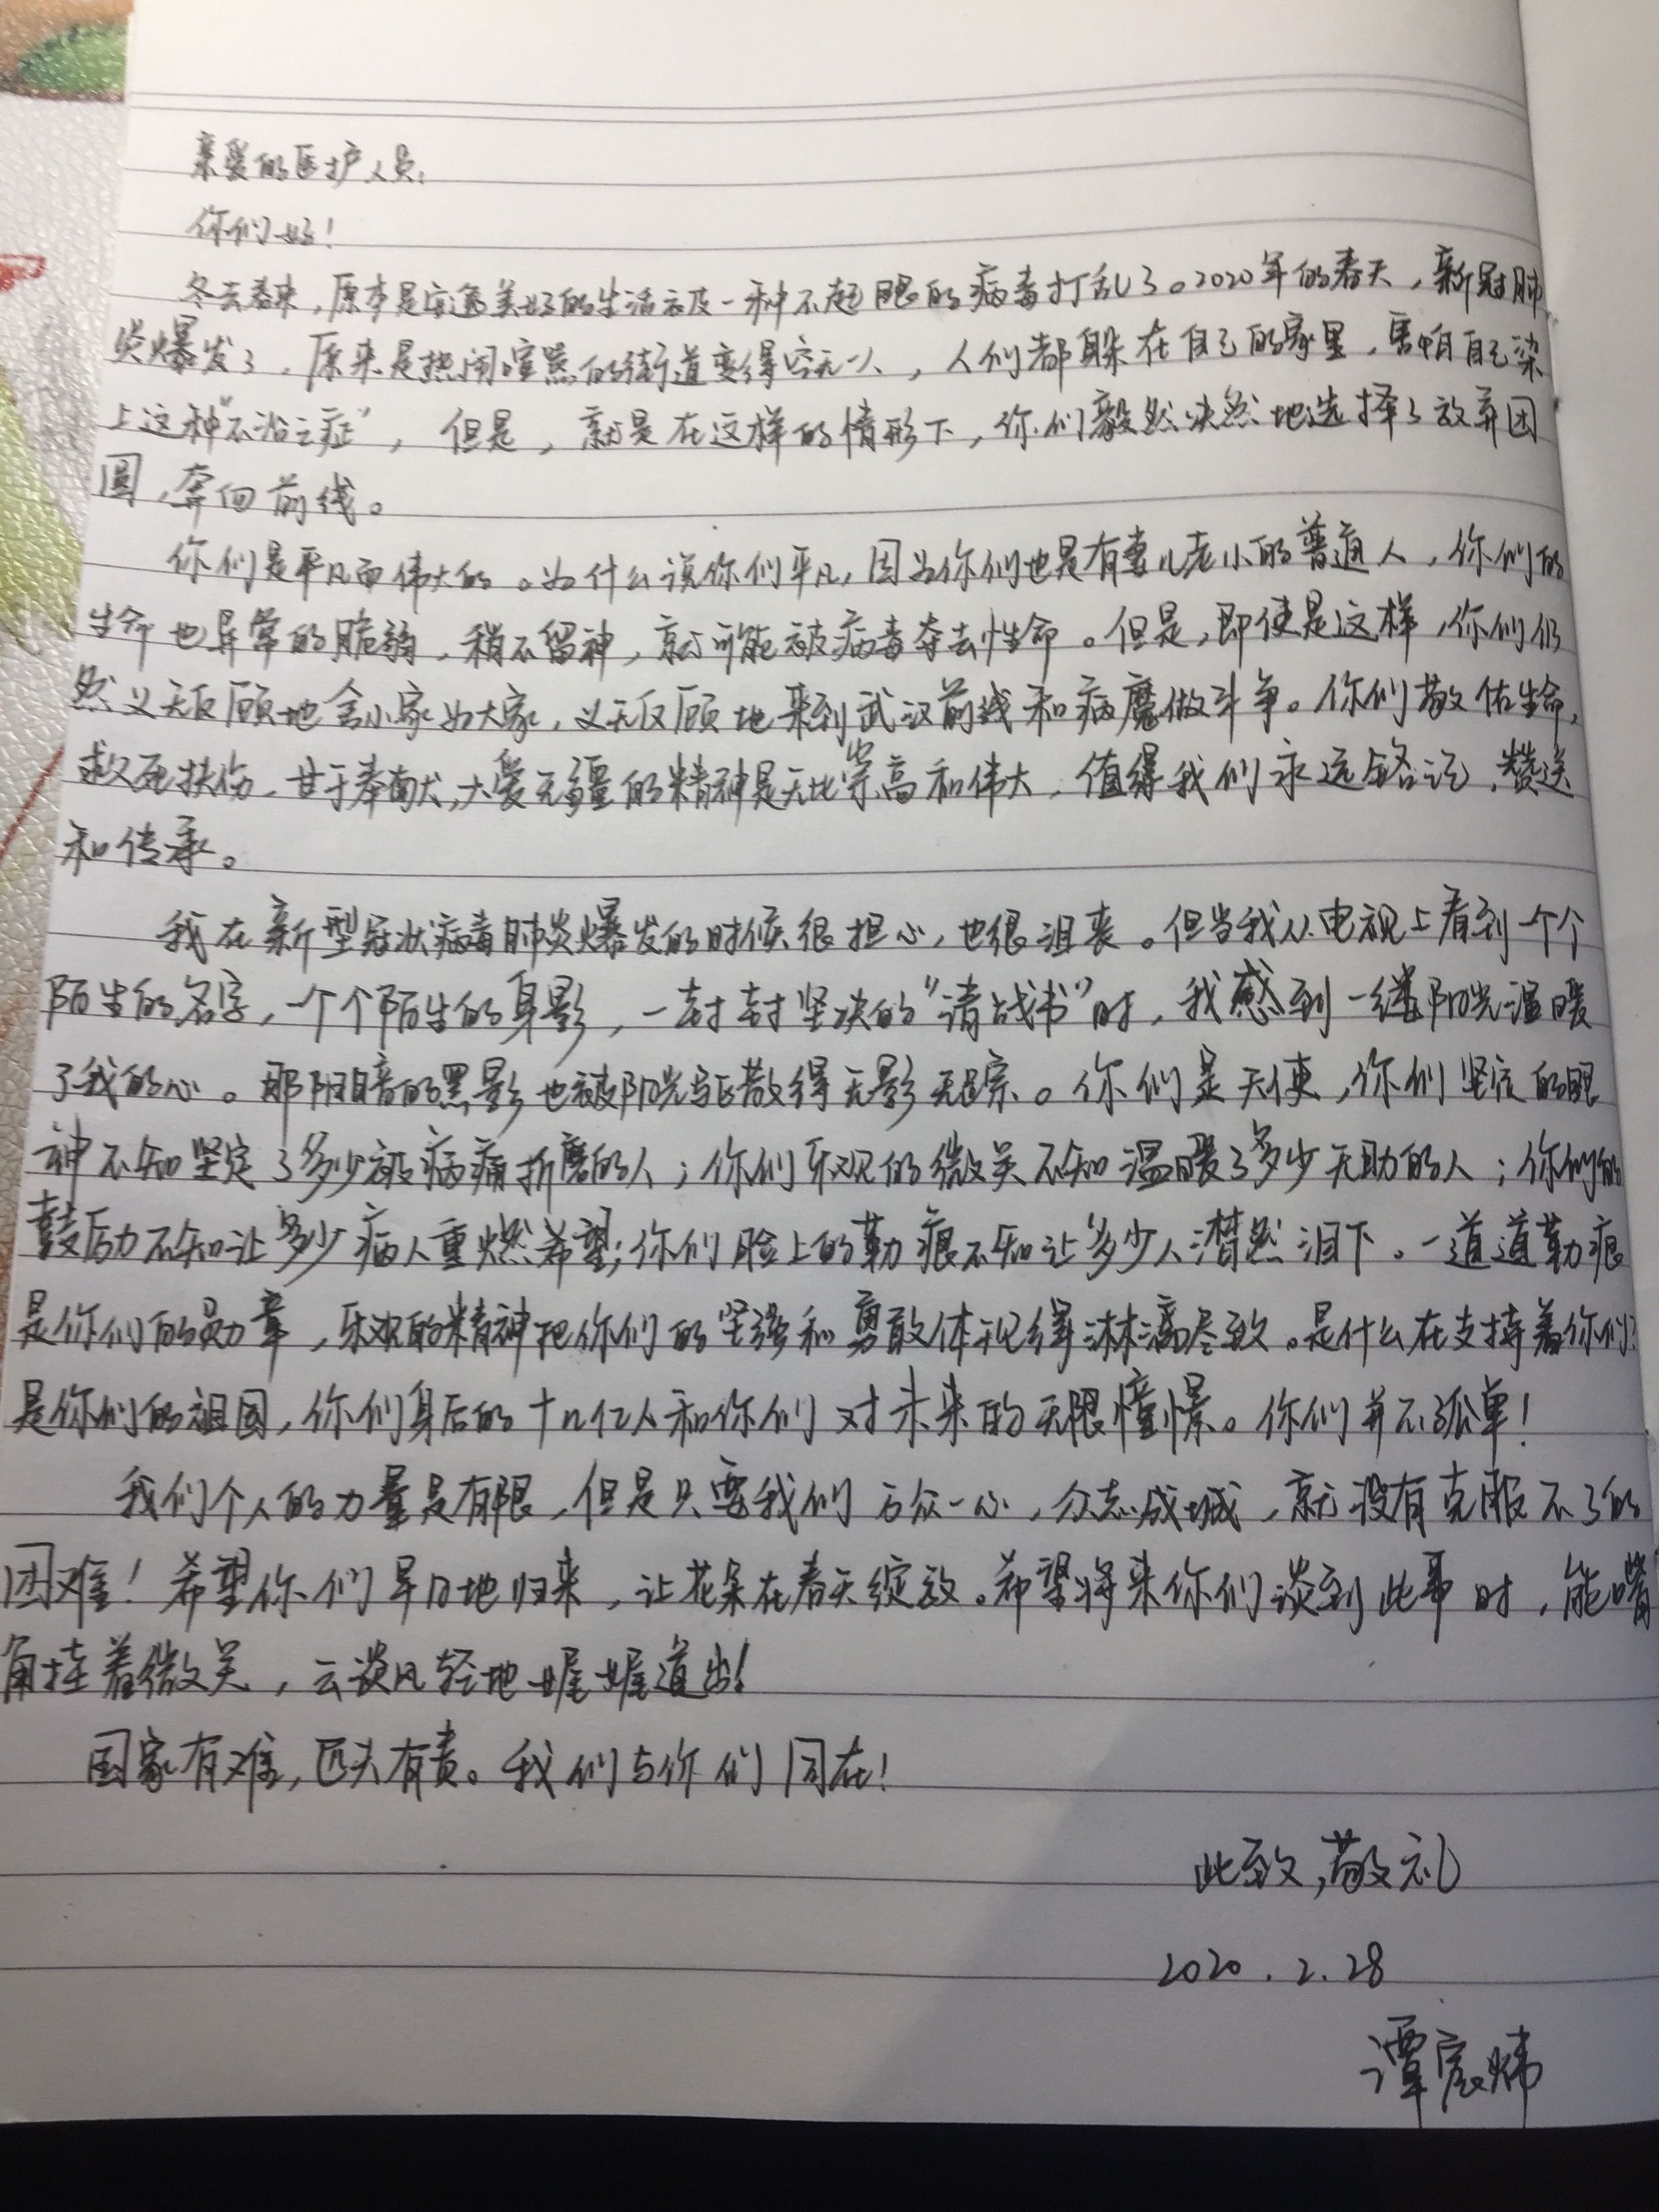 亲爱的医护人员:
你们好!
冬去春来,原本是安逸美好的生活被一种不起眼的病毒打乱了。2020年的春天,新冠肺
炎爆发了,原来是热闹喧嚣的街道变得空无一人,人们都躲在自己的家里,害怕自己染
上这种“不治之症”,但是,就是在这样的情形下,你们毅然决然地选择了放弃团
圆,奔向前线。
你们是平凡而伟大的。为什么说你们平凡,因为你们也是有妻儿老小的普通人,你们的
生命也异常的脆弱,稍不留神,就可能被病毒夺去性命。但是,即使是这样,你们仍
然义无反顾地舍小家为大家,义无反顾地来到武汉前线和病魔做斗争。你们敬佑生命,
救死扶伤,甘于奉献,大爱无疆的精神是无比崇高和伟大,值得我们永远铭记,赞送
和传承。
我在新型冠状病毒肺炎爆发的时候很担心,也很沮丧。但当我从电视上看到一个个
陌生的名字,一个个陌生的身影,一封封坚决的“请战书”时,我感到一缕阳光温暖
了我的心。那阴暗的黑影也被阳光驱散得无影无踪。你们是天使,你们坚定的眼
神不知坚定了多少被病痛折磨的人;你们乐观的微笑不知温暖了多少无助的人;你们的
鼓励不知让多少病人重燃希望;你们脸上的勒痕不知让多少人潸然泪下。一道道勒痕
是你们的勋章,乐观的精神把你们的坚强和勇敢体现得淋漓尽致。是什么在支持着你们?
是你们的祖国,你们身后的十几亿人和你们对未来的无限憧憬。你们并不孤单!
我们个人的力量是有限,但是只要我们万众一心,众志成城,就没有克服不了的
困难!希望你们早日地归来,让花朵在春天绽放。希望将来你们谈到此事时,能嘴
角挂着微笑,云淡风轻地娓娓道出!
国家有难,匹夫有责。我们与你们同在!
此致,敬礼
2020.2.28
谭宸炜